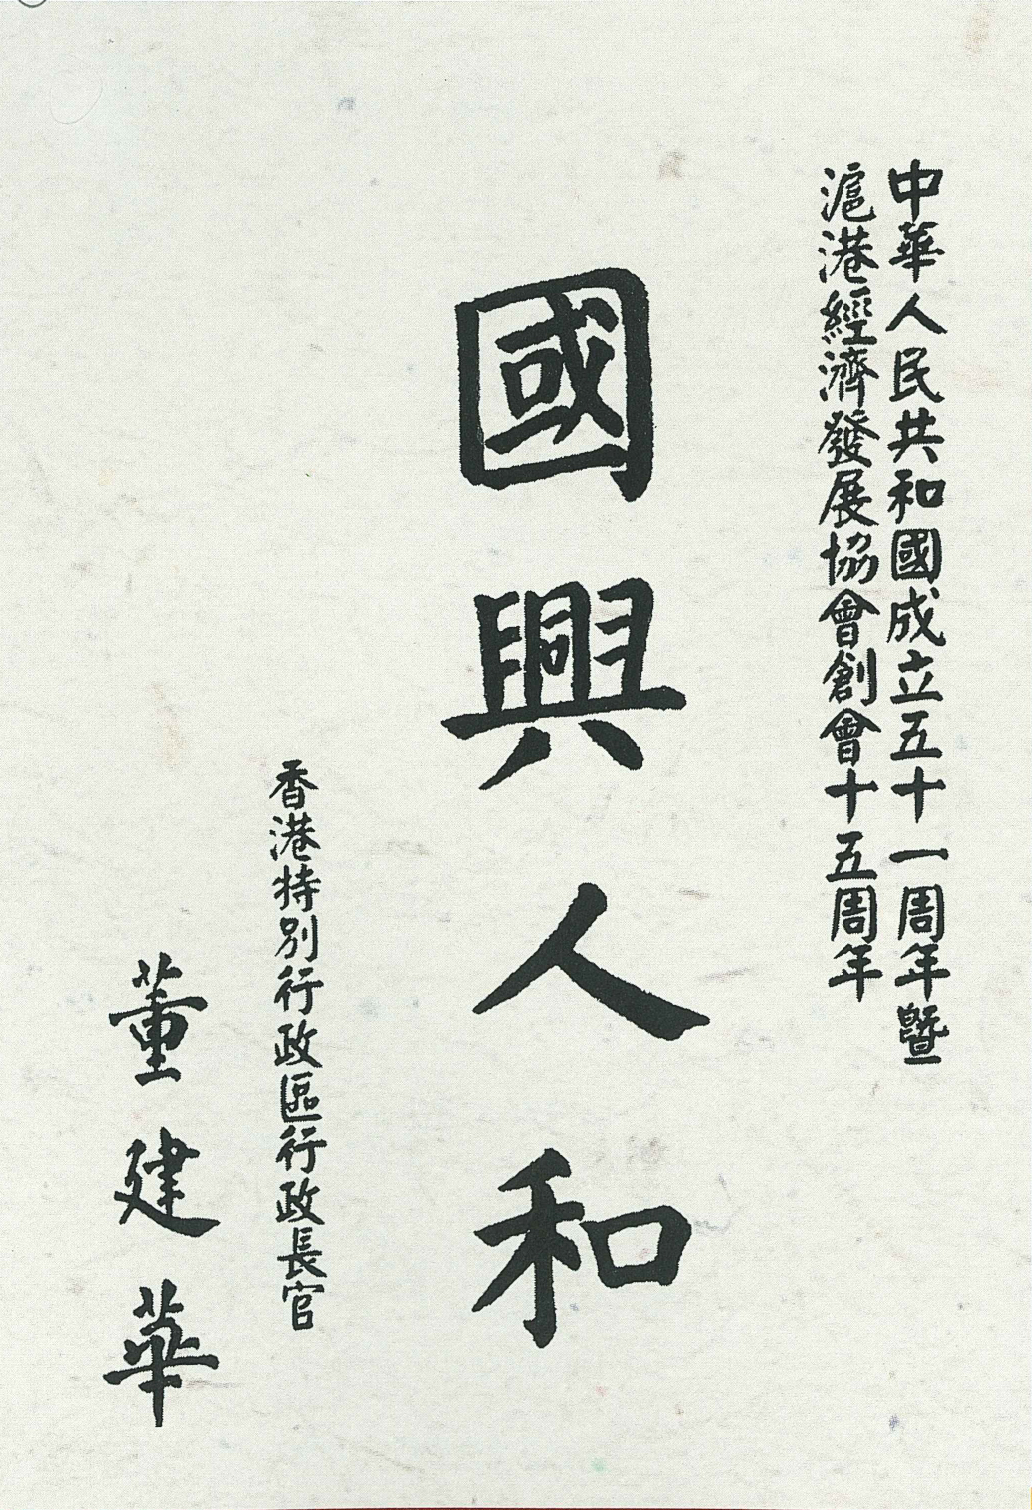 中華人民共和國成立五十一周年暨
滬港經濟發展協會創會十五周年
國興人和
香港特別行政區行政長官
董建華